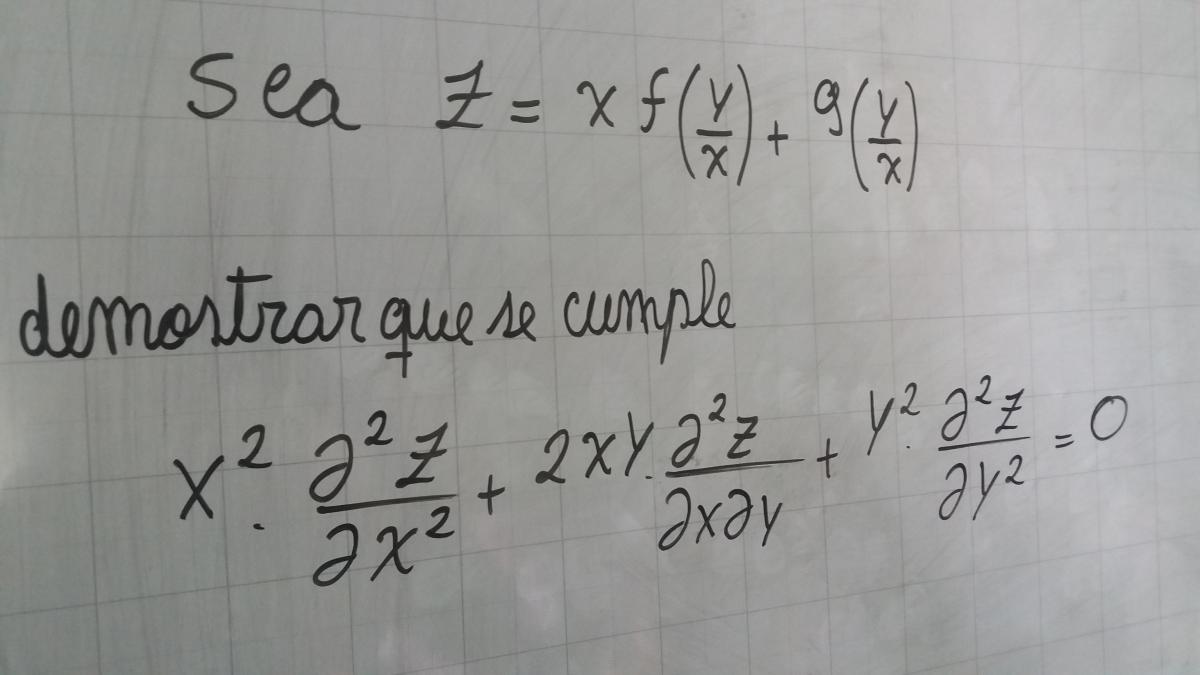 Sea z = x f(y/x) + g(y/x)
demostrar que se cumple
x² · ∂²z/∂x² + 2xy · ∂²z/∂x∂y + y² · ∂²z/∂y² = 0